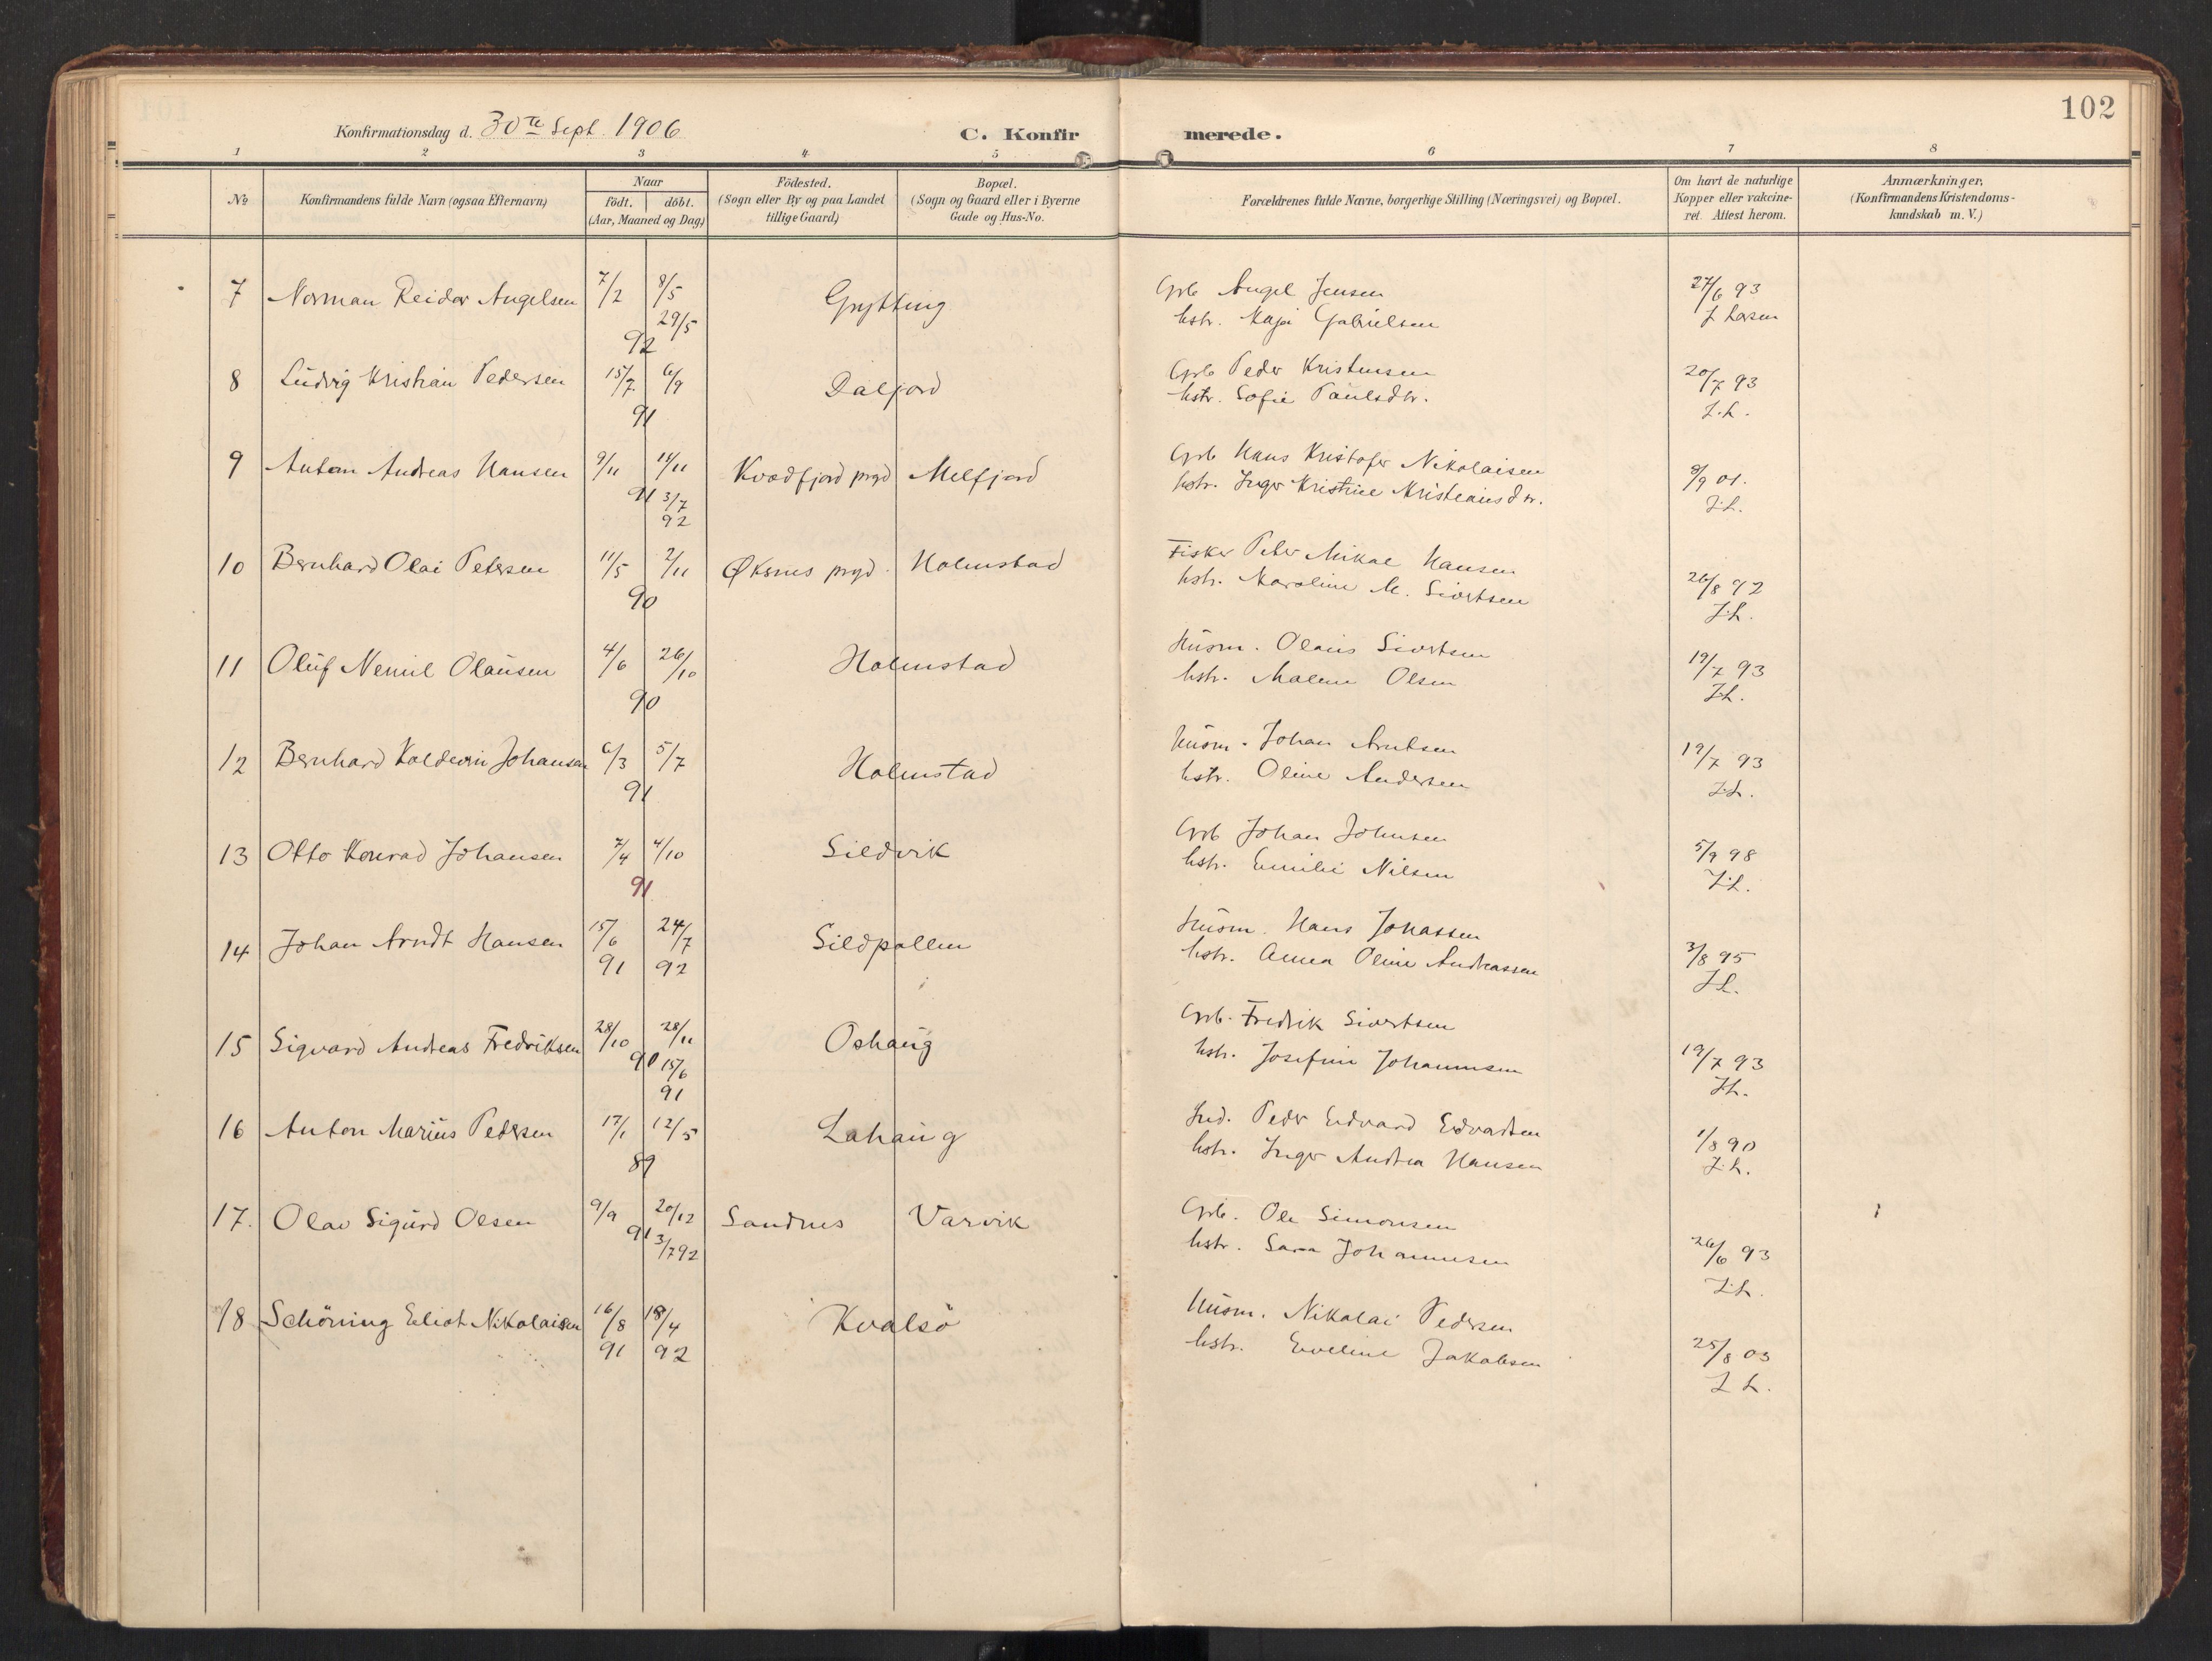 102
Konfirmationsdag d. 30te Sept. 1906
C. Konfirmerede.
1 2 3 4 5 6 7 8
No
Konfirmandens fulde Navn (ogsaa Efternavn)
Naar
födt. döbt.
(Aar, Maaned og Dag)
Födested.
(Sogn eller By og paa Landet
tillige Gaard)
Bopæl.
(Sogn og Gaard eller i Byerne
Gade og Hus-No.
Forældrenes fulde Navne, borgerlige Stilling (Næringsvei) og Bopæl.
Om havt de naturlige
Kopper eller vakcine-
ret. Attest herom.
Anmærkninger,
(Konfirmandens Kristendoms-
kundskab m. V.)
7 Norman Reidar Angelsen 7/2 8/5 29/5 92 Grytting
Grb Angel Jensen
hstr. Kaja Gabrielsen
27/6 93
J Larsen
8 Ludvig Kristian Pedersen 15/7 6/9 91 Daljord
Grb Peder Kristensen
hstr. Sofie Paulsdtr.
20/7 93
J.L.
9 Anton Andreas Hansen 9/11 11/11 91 3/7 92 Kvædfjord prgd Melfjord
Grb Hans Kristofer Nikolaisen
hstr. Inger Kristine Kristiansdtr.
8/9 01.
J.L.
10 Bernhard Olai Petersen 11/5 2/11 90 Øksnes prgd. Holmstad
Fisker Peter Mikal Hansen
hstr. Karoline M. Sivertsen
26/8 92
J.L.
11 Oluf Nemil Olausen 4/6 26/10 90 Holmstad
Husm. Olaus Sivertsen
hstr. Malene Olsen
19/7 93
J.L.
12 Bernhard Koldevin Johansen 6/3 5/7 91 Holmstad
Husm. Johan Arntsen
hstr. Oline Andersen
19/7 93
J.L.
13 Otto Konrad Johansen 7/4 4/10 91 Sildvik
Grb Johan Johnsen
hstr. Emilie Nilsen
5/9 98
J.L.
14 Johan Arndt Hansen 15/6 91 24/7 92 Sildpollen
Husm. Hans Jonassen
hstr. Anna Oline Andreassen
3/8 95
J.L.
15 Sigvard Andreas Fredriksen 28/10 28/11 90 15/6 91 Oshaug
Grb. Fredrik Sivertsen
hstr. Josefine Johannesen
19/7 93
J.L.
16 Anton Marius Pedersen 17/1 12/5 89 Lahaug
Ind. Peder Edvard Edvardsen
hstr. Inger Andrea Hansen
1/8 90
J.L.
17. Olav Sigurd Olsen 9/9 20/12 91 3/7 92 Sandnes Varvik
Grb. Ole Simonsen
hstr. Sara Johannesen
26/6 93
J.L.
18 Schöning Eliot Nikolaisen 16/8 91 18/4 92 Kvalsö
Husm. Nikolai Pedersen
hstr. Eveline Jakobsen
25/8 03
J L.